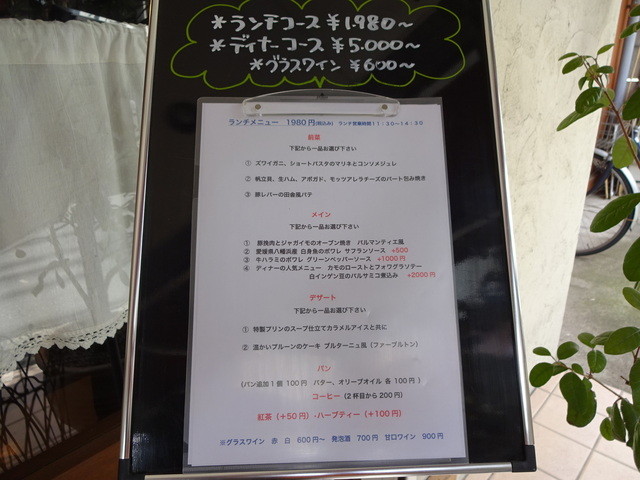 *ランチコース ¥1.980〜
*ディナーコース ¥5.000〜
*グラスワイン ¥600〜
ランチメニュー 1980円(税込み) ランチ営業時間11:30〜14:30
前菜
下記から一品お選び下さい
① ズワイガニ、ショートパスタのマリネとコンソメジュレ
② 帆立貝、生ハム、アボガド、モッツアレラチーズのパート包み焼き
③ 豚レバーの田舎風パテ
メイン
下記から一品お選び下さい
① 豚挽肉とジャガイモのオーブン焼き パルマンティエ風
② 愛媛県八幡浜産 白身魚のポワレ サフランソース +500
③ 牛ハラミのポワレ グリーンペッパーソース +1000円
④ ディナーの人気メニュー カモのローストとフォワグラソテー
白インゲン豆のバルサミコ煮込み +2000円
デザート
下記から一品お選び下さい
① 特製プリンのスープ仕立てカラメルアイスと共に
② 温かいプルーンのケーキ ブルターニュ風(ファーブルトン)
パン
(パン追加1個 100円 バター、オリーブオイル 各 100円)
コーヒー(2杯目から200円)
紅茶(+50円)・ハーブティー(+100円)
※グラスワイン 赤 白 600円〜 発泡酒 700円 甘口ワイン 900円